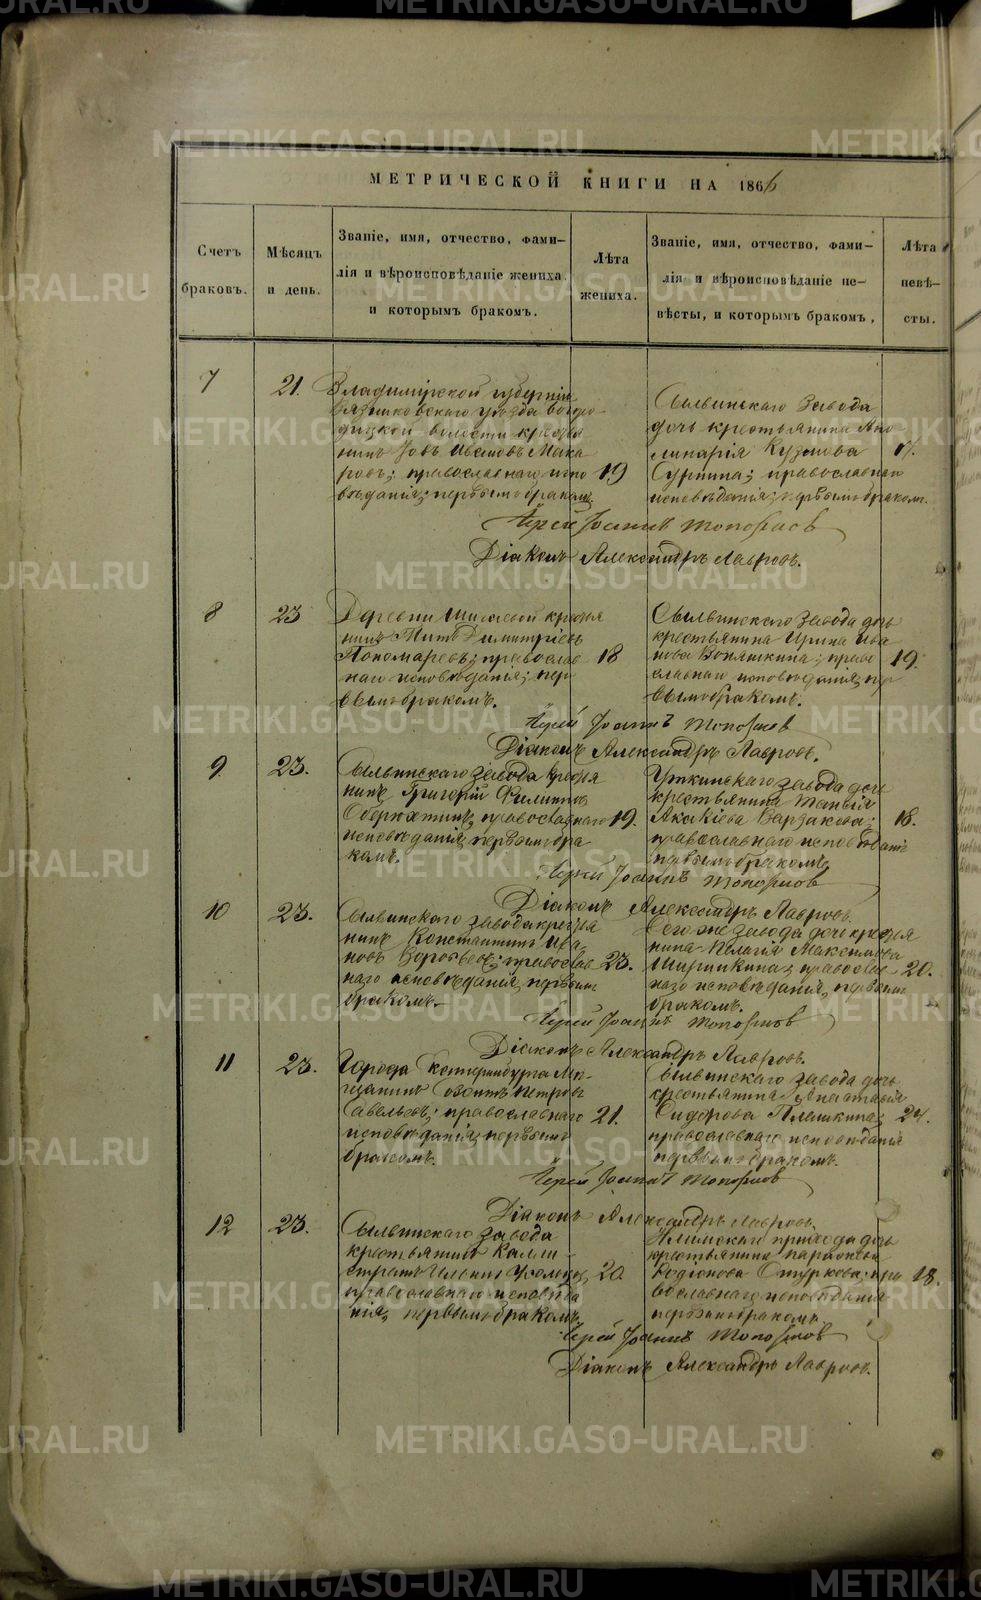 МЕТРИЧЕСКОЙ КНИГИ НА 1866
Счетъ браковъ.
Мѣсяцъ и день.
Званіе, имя, отчество, фами-
лія и вѣроисповѣданіе жениха
и которымъ бракомъ.
Лѣта жениха.
Званіе, имя, отчество, фами-
лія и вѣроисповѣданіе не-
вѣсты, и которымъ бракомъ,
Лѣта невѣ-
сты.
7
21.
Владимірской губерніи
уѣзда
волости кресть
нинъ Іовъ Ивановъ Мака
ровъ; православнаго испо
вѣданія; первымъ бракомъ
19
Сылвинскаго завода
дочь крестьянина Апо
линарія Кузмова
православнаго
исповѣданія; первымъ бракомъ.
Іерей Іоаннъ Топорковъ
Діаконъ Александръ Лавровъ.
8
23
Деревни кресть
нинъ Титъ Димитріевъ
Пономаревъ; православ
наго исповѣданія; пер
вымъ бракомъ.
18
Сылвинскаго завода дочь
крестьянина Ирина Ива
нова право
славнаго исповѣданія; пер
вымъ бракомъ.
19.
Іерей Іоаннъ Топорковъ
Діаконъ Александръ Лавровъ.
9
23.
Сылвинскаго завода крестья
нинъ Григорій Филиповъ
православнаго
исповѣданія, первымъ бра
комъ.
19.
Уткинскаго завода дочь
крестьянина
Акакіева
православнаго исповѣданія
первымъ бракомъ
18.
Іерей Іоаннъ Топорковъ
Діаконъ Александръ Лавровъ.
10
23.
Сылвинскаго завода крестья
нинъ Константинъ Ива
новъ православ
наго исповѣданія, первымъ
бракомъ.
23.
Сего же завода дочь крестья
нина Пелагія Максимова
Ширинкина; православ
наго исповѣданія, первымъ
бракомъ.
20.
Іерей Іоаннъ Топорковъ
Діаконъ Александръ Лавровъ.
11
23.
Города Екатеринбурга Мѣ-
щанинъ Петровъ
Савельевъ; православнаго
исповѣданія; первымъ
бракомъ.
21.
Сылвинскаго завода дочь
крестьянина Анастасія
Сидорова Плешкина;
православнаго исповѣданія
первымъ бракомъ.
24.
Іерей Іоаннъ Топорковъ
Діаконъ Александръ Лавровъ.
12
23.
Сылвинскаго завода
крестьянинъ Калли-
стратъ Ильинъ
православнаго исповѣда
нія, первымъ бракомъ.
20
Илимскаго прихода дочь
крестьянина Параскева
Родіонова пра
вославнаго исповѣданія
первымъ бракомъ.
18.
Іерей Іоаннъ Топорковъ
Діаконъ Александръ Лавровъ.
METRIKI.GASO-URAL.RU